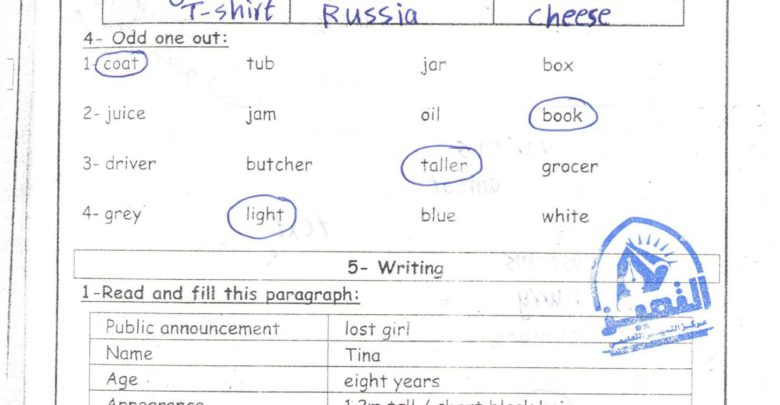 T-shirt Russia cheese
4- Odd one out:
1- coat tub jar box
2- juice jam oil book
3- driver butcher taller grocer
4- grey light blue white
5- Writing
1-Read and fill this paragraph:
Public announcement lost girl
Name Tina
Age eight years
التميز
مركز التميز التعليمي
Appearance 1.3m tall / short black